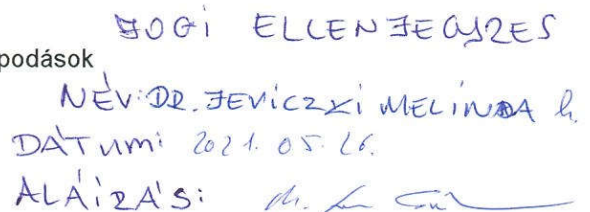 JOGI ELLENJEGYZÉS
podások
NÉV: DR. JEVICZKI MELINDA h.
DÁTUM: 2021. 05. 26.
ALÁÍRÁS: dr.